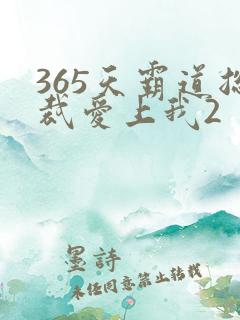 365天霸道总
裁爱上我2
墨詩
未经同意禁止转载